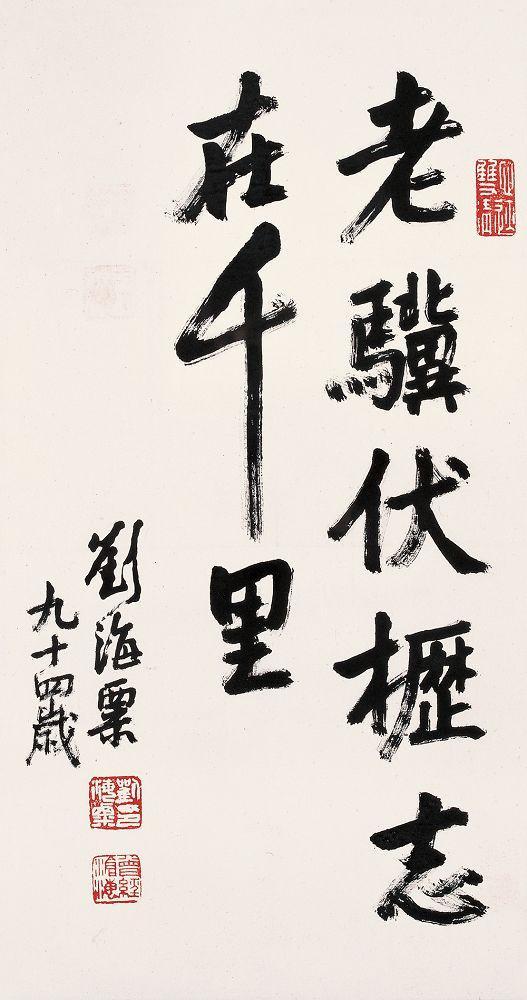 老驥伏櫪志
在千里
劉海粟
九十四歲